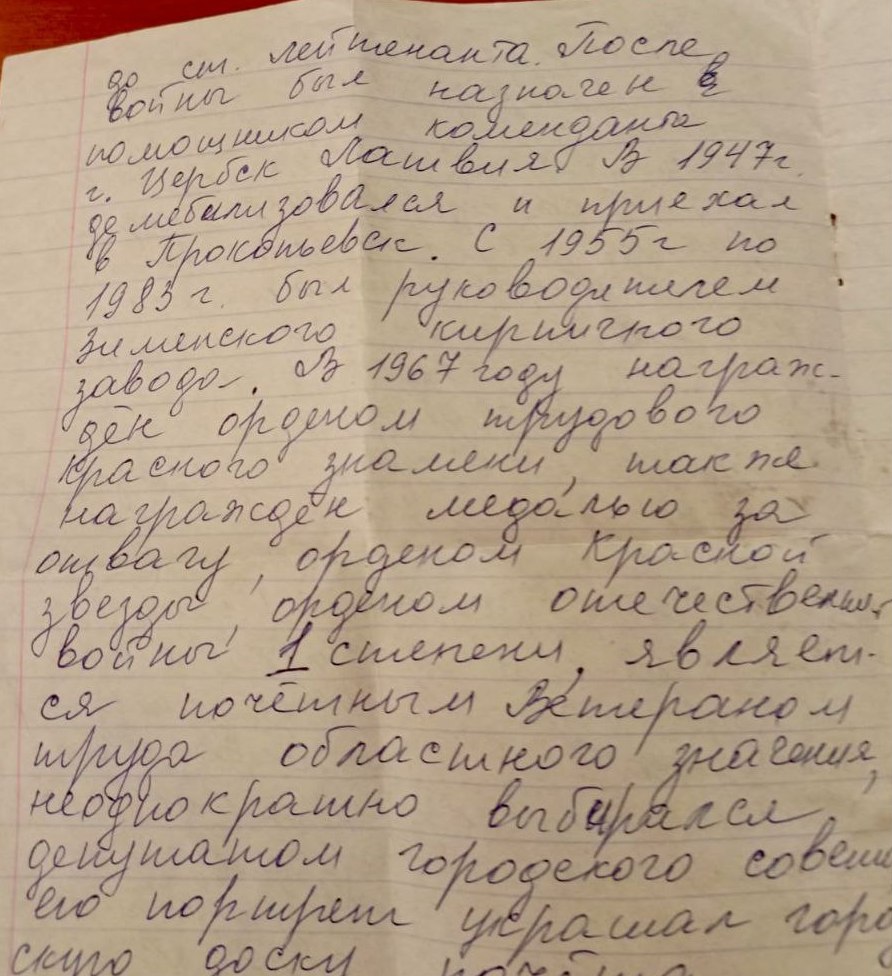 до ст. лейтенанта. После
войны был назначен в
помощником коменданта
г. Цербск Латвия. В 1947г.
демебилизовался и приехал
в Прокопьевск. С 1955г по
1983г. был руководителем
Зименского кирпичного
завода. В 1967 году награж-
дён орденом трудового
красного знамени, также
награждён медалью за
отвагу, орденом Красной
звезды, орденом отечественной
войны 1 степени, являет-
ся почётным Ветераном
труда областного значения,
неоднократно выбирался
депутатом городского совета
его портрет украшал горо
скую доску почёта